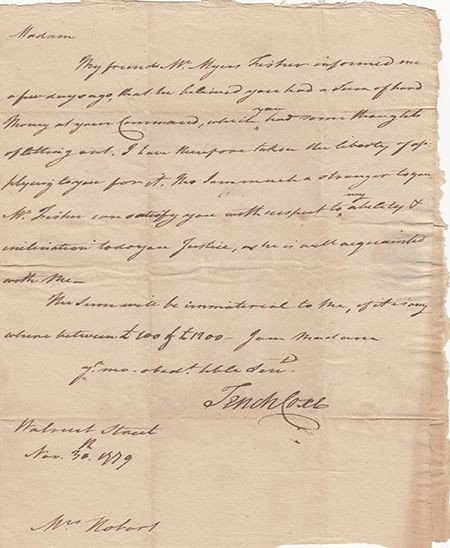 Madam
My friend Mr. Myers Fisher informed me
a few days ago, that he believed you had a Sum of hard
Money at your Command, which you had some thoughts
of letting out. I have therefore taken the liberty of ap-
plying to you for it. Tho I am much a stranger to you
Mr. Fisher can satisfy you with respect to my ability &
inclination to do you Justice, as he is well acquainted
with Me—
The Sum will be immaterial to Me, if it is any
where between £100 & £1200— I am Madam
yr. mo. obedt. hble Servt.
Tench Coxe
Walnut Street
Nov. 30th. 1779
Mrs Hobart